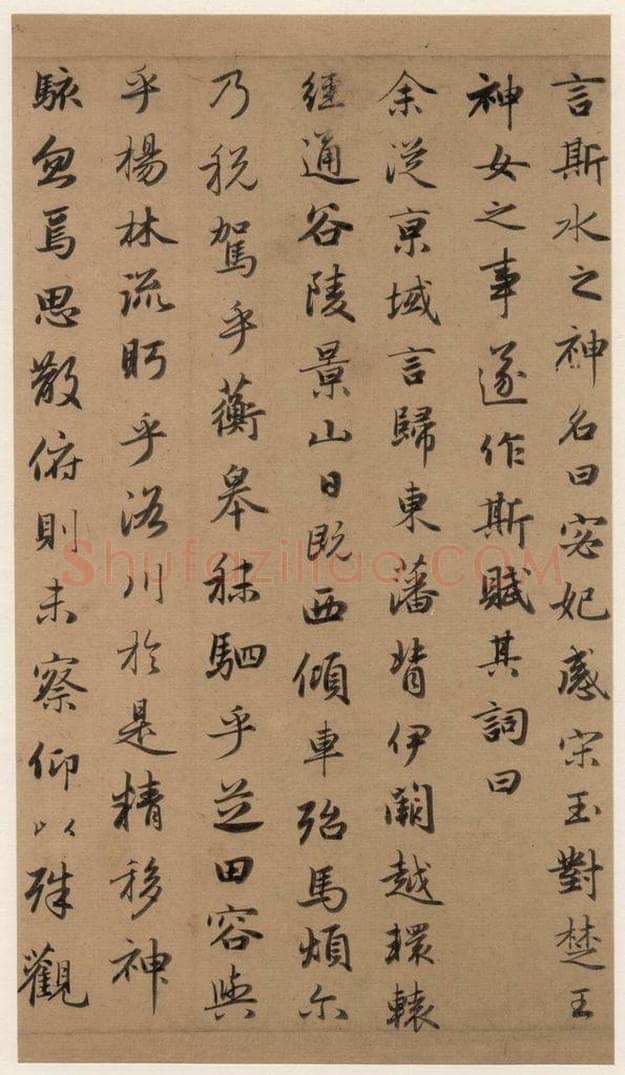 言斯水之神名曰宓妃感宋玉對楚王
神女之事遂作斯賦其詞曰
余從京域言歸東藩背伊闕越轘轅
經通谷陵景山日既西傾車殆馬煩尔
乃稅駕乎蘅皋秣駟乎芝田容與
乎楊林流眄乎洛川於是精移神
駭忽焉思散俯則未察仰以殊觀
Shufaziliao.COM